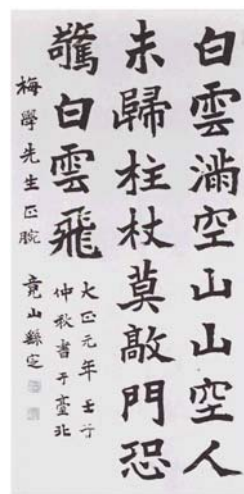 白雲滿空山山空人
未歸柱杖莫敲門恐
驚白雲飛
大正元年壬子
仲秋書于臺北
梅學先生正腕 竟山繇定